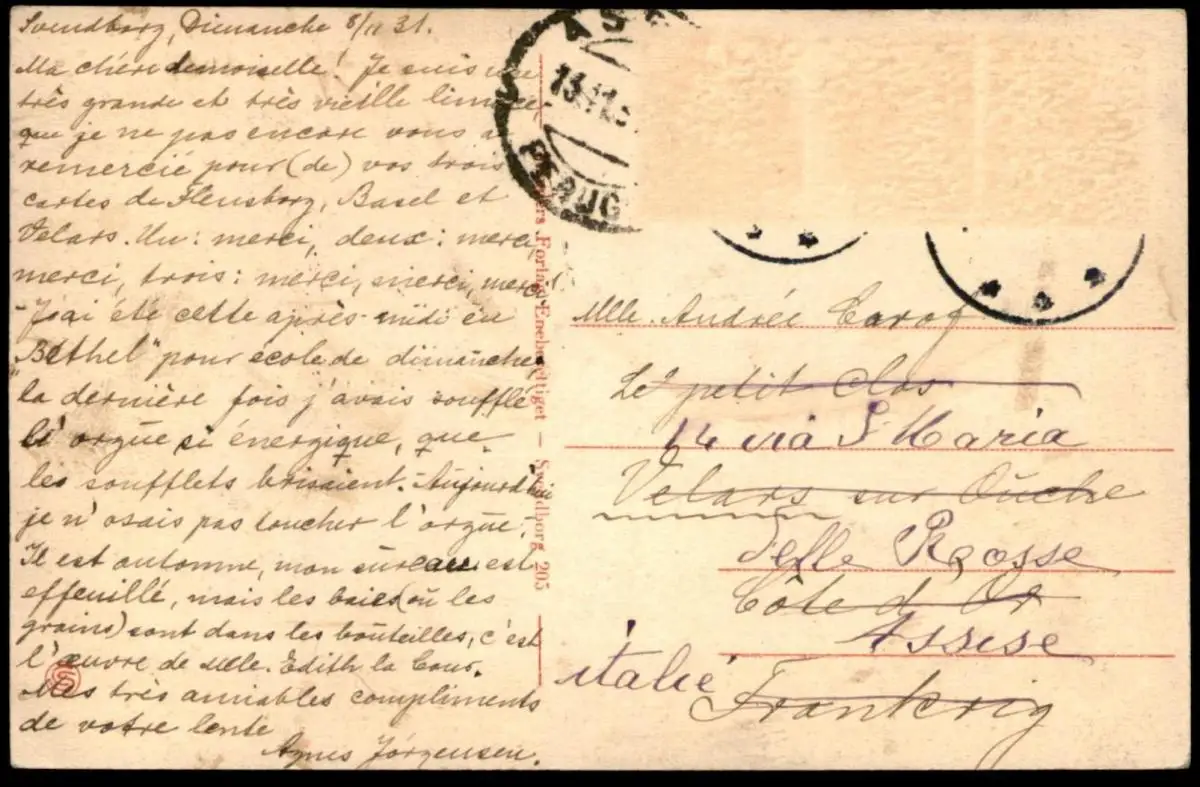 Svendborg, Dimanche 8/11 31.
Ma chère demoiselle! Je suis une
très grande et très vieille limace
que je ne pas encore vous a
remercié pour (de) vos trois
cartes de Flensborg, Basel et
Velars. Un: merci, deux: merci,
merci, trois: merci, merci, merci!
- J'ai été cette après-midi en
"Béthel" pour école de dimanche
la dernière fois j'avais soufflé
l'orgue si énergique, que
les soufflets brisaient. Aujourd'hui
je n'osais pas toucher l'orgue.
Il est automne, mon sureau est
effeuillé, mais les baies (où les
grains) sont dans les bouteilles, c'est
l'œuvre de Mlle. Edith la Cour.
Mes très amiables compliments
de votre lente
Agnes Jørgensen.
ers Forlag Eneberettiget — Svendborg 205
AS
13.11.3
PERUG
Mlle. Andrée Carof
Le petit Clos
14 via S. Maria
Velars sur Ouche
delle Roosse
Côte d'Or
Assise
italie
Frankrig